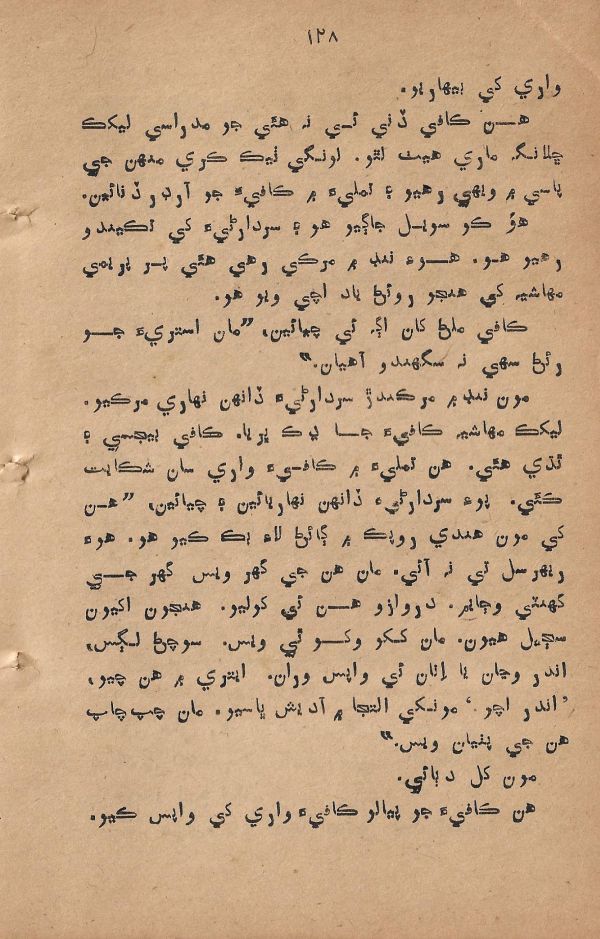 ١٢٨
واري کي بيهاريو.
هن ڪافي ڏني ئي نہ هئي جو مدراسي ليکڪ
ڇلانگہ ماري هيٺ لٿو. لونگي ٺيڪ ڪري منهن جي
پاسي ۾ ويهي رهيو ۽ تمليءَ ۾ ڪافيءَ جو آرڊر ڏنائين.
هؤ ڪو سويل جاڳيو هو ۽ سردارڻيءَ کي تڪيندو
رهيو هو. هوءَ ننڊ ۾ مرڪي رهي هئي پر پريمي
مهاشيہ کي هنجو روئڻ ياد اچي ويو هو.
ڪافي ملڻ کان اڳہ ئي چيائين، ”مان استريءَ جو
رئڻ سهي نہ سگهندو آهيان.“
مون ننڊ ۾ مرڪندڙ سردارڻيءَ ڏانهن نهاري مرڪيو.
ليکڪ مهاشيہ ڪافيءَ جا ڍڪ ڀريا. ڪافي بيجسي ۽
ٿڌي هئي. هن تمليءَ ۾ ڪافيءَ واري سان شڪايت
ڪئي. پوءِ سردارڻيءَ ڏانهن نهاريائين ۽ چيائين، ”هن
کي مون هندي روپڪ ۾ ڳائڻ لاءِ بڪ ڪيو هو. هوءَ
ريهرسل تي نہ آئي. مان هن جي گهر ويس گهر جي
گهنٽي وڄايم. دروازو هن ئي کوليو. هنجون اکيون
سڄيل هيون. مان ڪڪو وڪو ٿي ويس. سوچڻ لڳس،
اندر وڃان يا اِتان ئي واپس وران. ايتري ۾ هن چيو،
’اندر اچو.‘ مونکي التجا ۾ آديش ڀاسيو. مان چپ چاپ
هن جي پٺيان ويس.“
مون کل دٻائي.
هن ڪافيءَ جو پيالو ڪافيءَ واري کي واپس ڪيو.